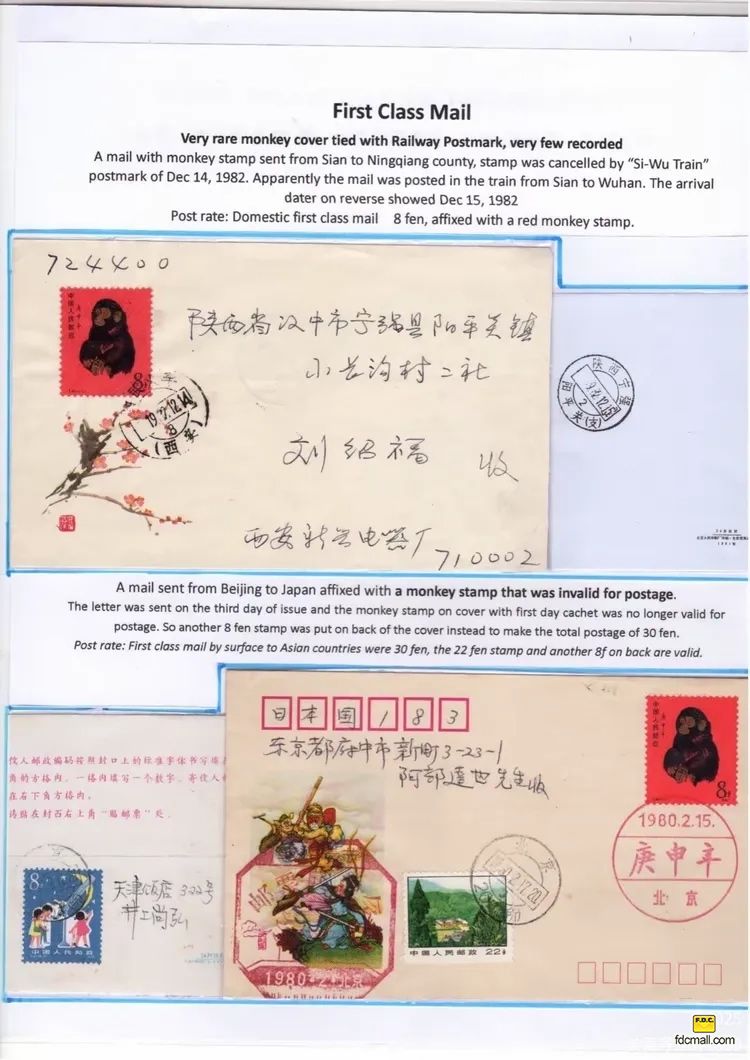 First Class Mail
Very rare monkey cover tied with Railway Postmark, very few recorded
A mail with monkey stamp sent from Sian to Ningqiang county, stamp was cancelled by “Si-Wu Train”
postmark of Dec 14, 1982. Apparently the mail was posted in the train from Sian to Wuhan. The arrival
dater on reverse showed Dec 15, 1982
Post rate: Domestic first class mail 8 fen, affixed with a red monkey stamp.
724400
中国人民邮政
庚申年
8分
陕西省汉中市宁强县阳平关镇
小长沟村二社
刘绍福 收
西安新兴电器厂
710002
(西安)
陕西宁强
阳平关(支)
A mail sent from Beijing to Japan affixed with a monkey stamp that was invalid for postage.
The letter was sent on the third day of issue and the monkey stamp on cover with first day cachet was no longer valid for
postage. So another 8 fen stamp was put on back of the cover instead to make the total postage of 30 fen.
Post rate: First class mail by surface to Asian countries were 30 fen, the 22 fen stamp and another 8f on back are valid.
日本国183
东京都府中市新町3-23-1
阿部達也先生收
中国人民邮政
庚申年
8分
1980.2.15.
庚申年
北京
伩人邮政编码按照封口上的标准字体书写填
角的方格内。一格内填写一个数字。寄伩人
在右下角方格内。
票贴在封西右上角“贴邮票”处。
8分
中国人民邮政
天津饭店322号
井上尚弘
北京
中国人民邮政 22分
1980·2·北京
F.D.C.
fdcmall.com